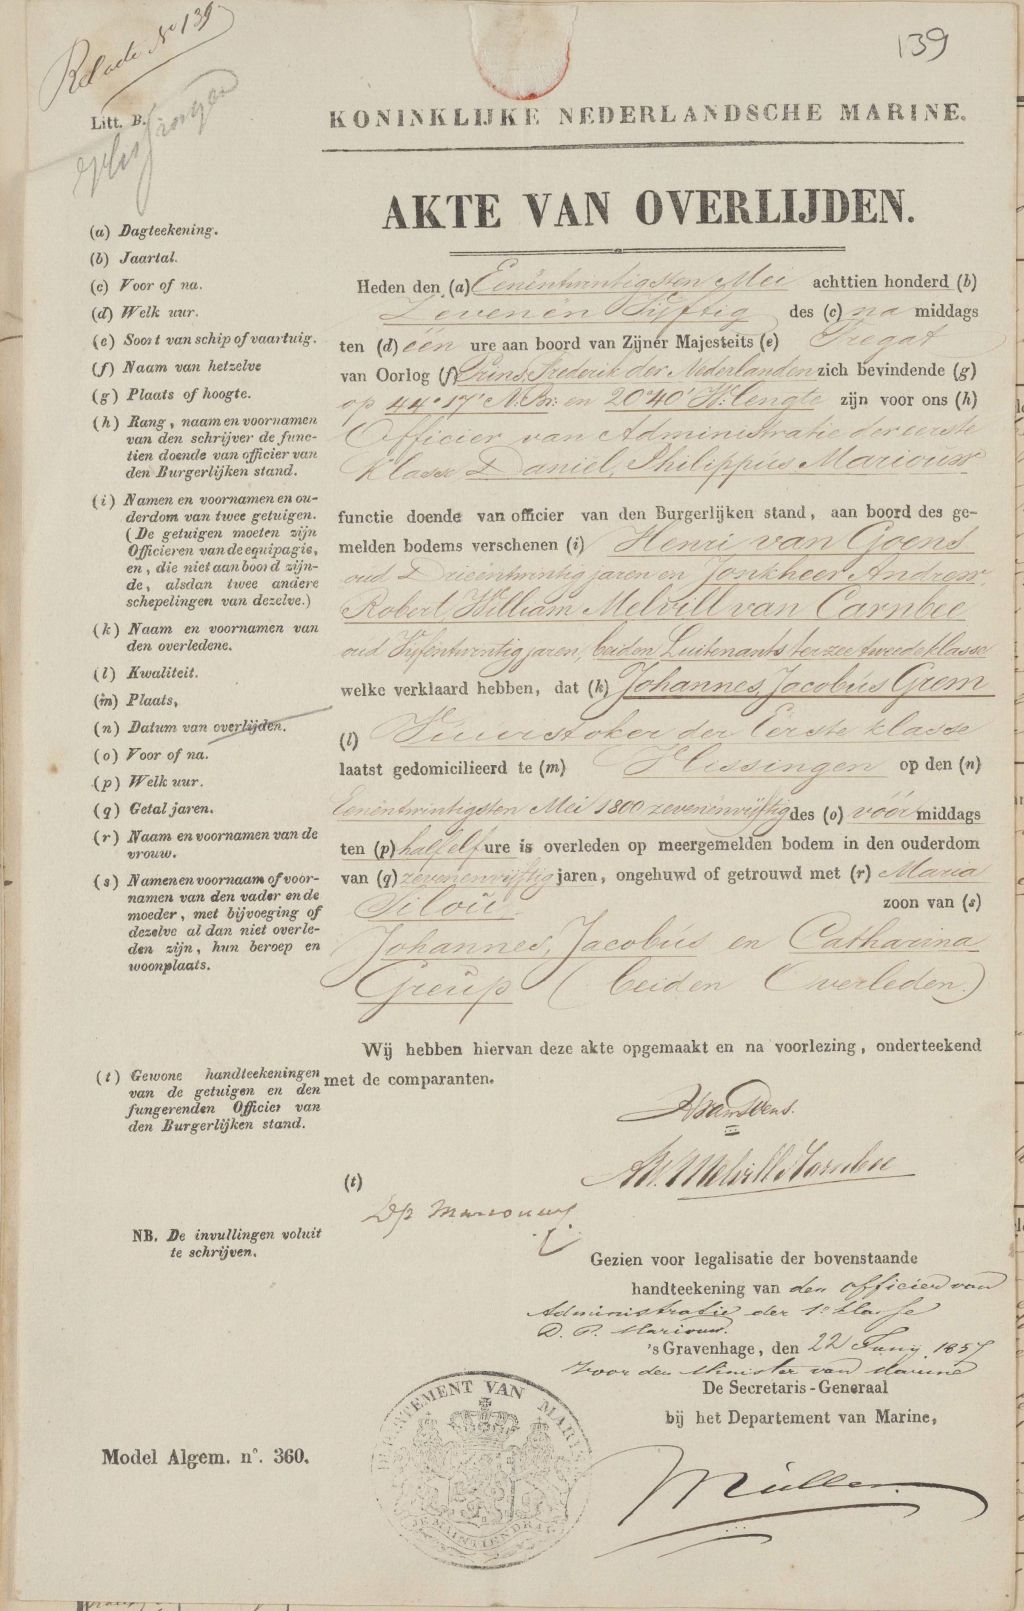 Relade No 139
139
Litt. B.
Vlissingen
KONINKLIJKE NEDERLANDSCHE MARINE.
AKTE VAN OVERLIJDEN.
(a) Dagteekening.
(b) Jaartal.
(c) Voor of na.
(d) Welk uur.
(e) Soort van schip of vaartuig.
(f) Naam van hetzelve
(g) Plaats of hoogte.
(h) Rang, naam en voornamen
van den schrijver de func-
tien doende van officier van
den Burgerlijken stand.
(i) Namen en voornamen en ou-
derdom van twee getuigen.
(De getuigen moeten zijn
Officieren van de equipagie,
en, die niet aan boord zijn-
de, alsdan twee andere
schepelingen van dezelve.)
(k) Naam en voornamen van
den overledene.
(l) Kwaliteit.
(m) Plaats,
(n) Datum van overlijden.
(o) Voor of na.
(p) Welk uur.
(q) Getal jaren.
(r) Naam en voornamen van de
vrouw.
(s) Namen en voornaam of voor-
namen van den vader en de
moeder, met bijvoeging of
dezelve al dan niet overle-
den zijn, hun beroep en
woonplaats.
(t) Gewone handteekeningen
van de getuigen en den
fungerenden Officier van
den Burgerlijken stand.
NB. De invullingen voluit
te schrijven.
Heden den (a) Eenëntwintigsten Mei achttien honderd (b)
Zevenën Vijftig des (c) na middags
ten (d) één ure aan boord van Zijner Majesteits (e) Fregat
van Oorlog (f) Prins Frederik der Nederlanden zich bevindende (g)
op 44° 17' N: Br: en 20° 40' W: lengte zijn voor ons (h)
Officier van Administratie der eerste
Klasse Daniël, Philippus Mariouw
functie doende van officier van den Burgerlijken stand, aan boord des ge-
melden bodems verschenen (i) Henri van Goens
oud Drieëntwintig jaren en Jonkheer Andrew,
Robert, William Melvill van Carnbee
oud Vijfentwintig jaren, beiden Luitenants ter zee tweede klasse
welke verklaard hebben, dat (k) Johannes, Jacobus Grem
(l) Vuurstoker der Eerste klasse
laatst gedomicilieerd te (m) Vlissingen op den (n)
Eenëntwintigsten Mei 1800 zevenënvijftig des (o) vóór middags
ten (p) half elf ure is overleden op meergemelden bodem in den ouderdom
van (q) zevenenvijftig jaren, ongehuwd of getrouwd met (r) Maria
Silöü zoon van (s)
Johannes, Jacobus en Catharina
Greup (beiden Overleden.)
Wij hebben hiervan deze akte opgemaakt en na voorlezing, onderteekend
met de comparanten.
HvanGoens.
(t)
Melvill v Carnbee
Dp Mariouw
Gezien voor legalisatie der bovenstaande
handteekening van den officier van
Administratie der 1e klasse
D. P. Mariouw.
's Gravenhage, den 22 Juny 1857
Voor den Minister van Marine
De Secretaris-Generaal
bij het Departement van Marine,
Müller.
DEPARTEMENT VAN MARINE
JE MAINTIENDRAI
Model Algem. n°. 360.